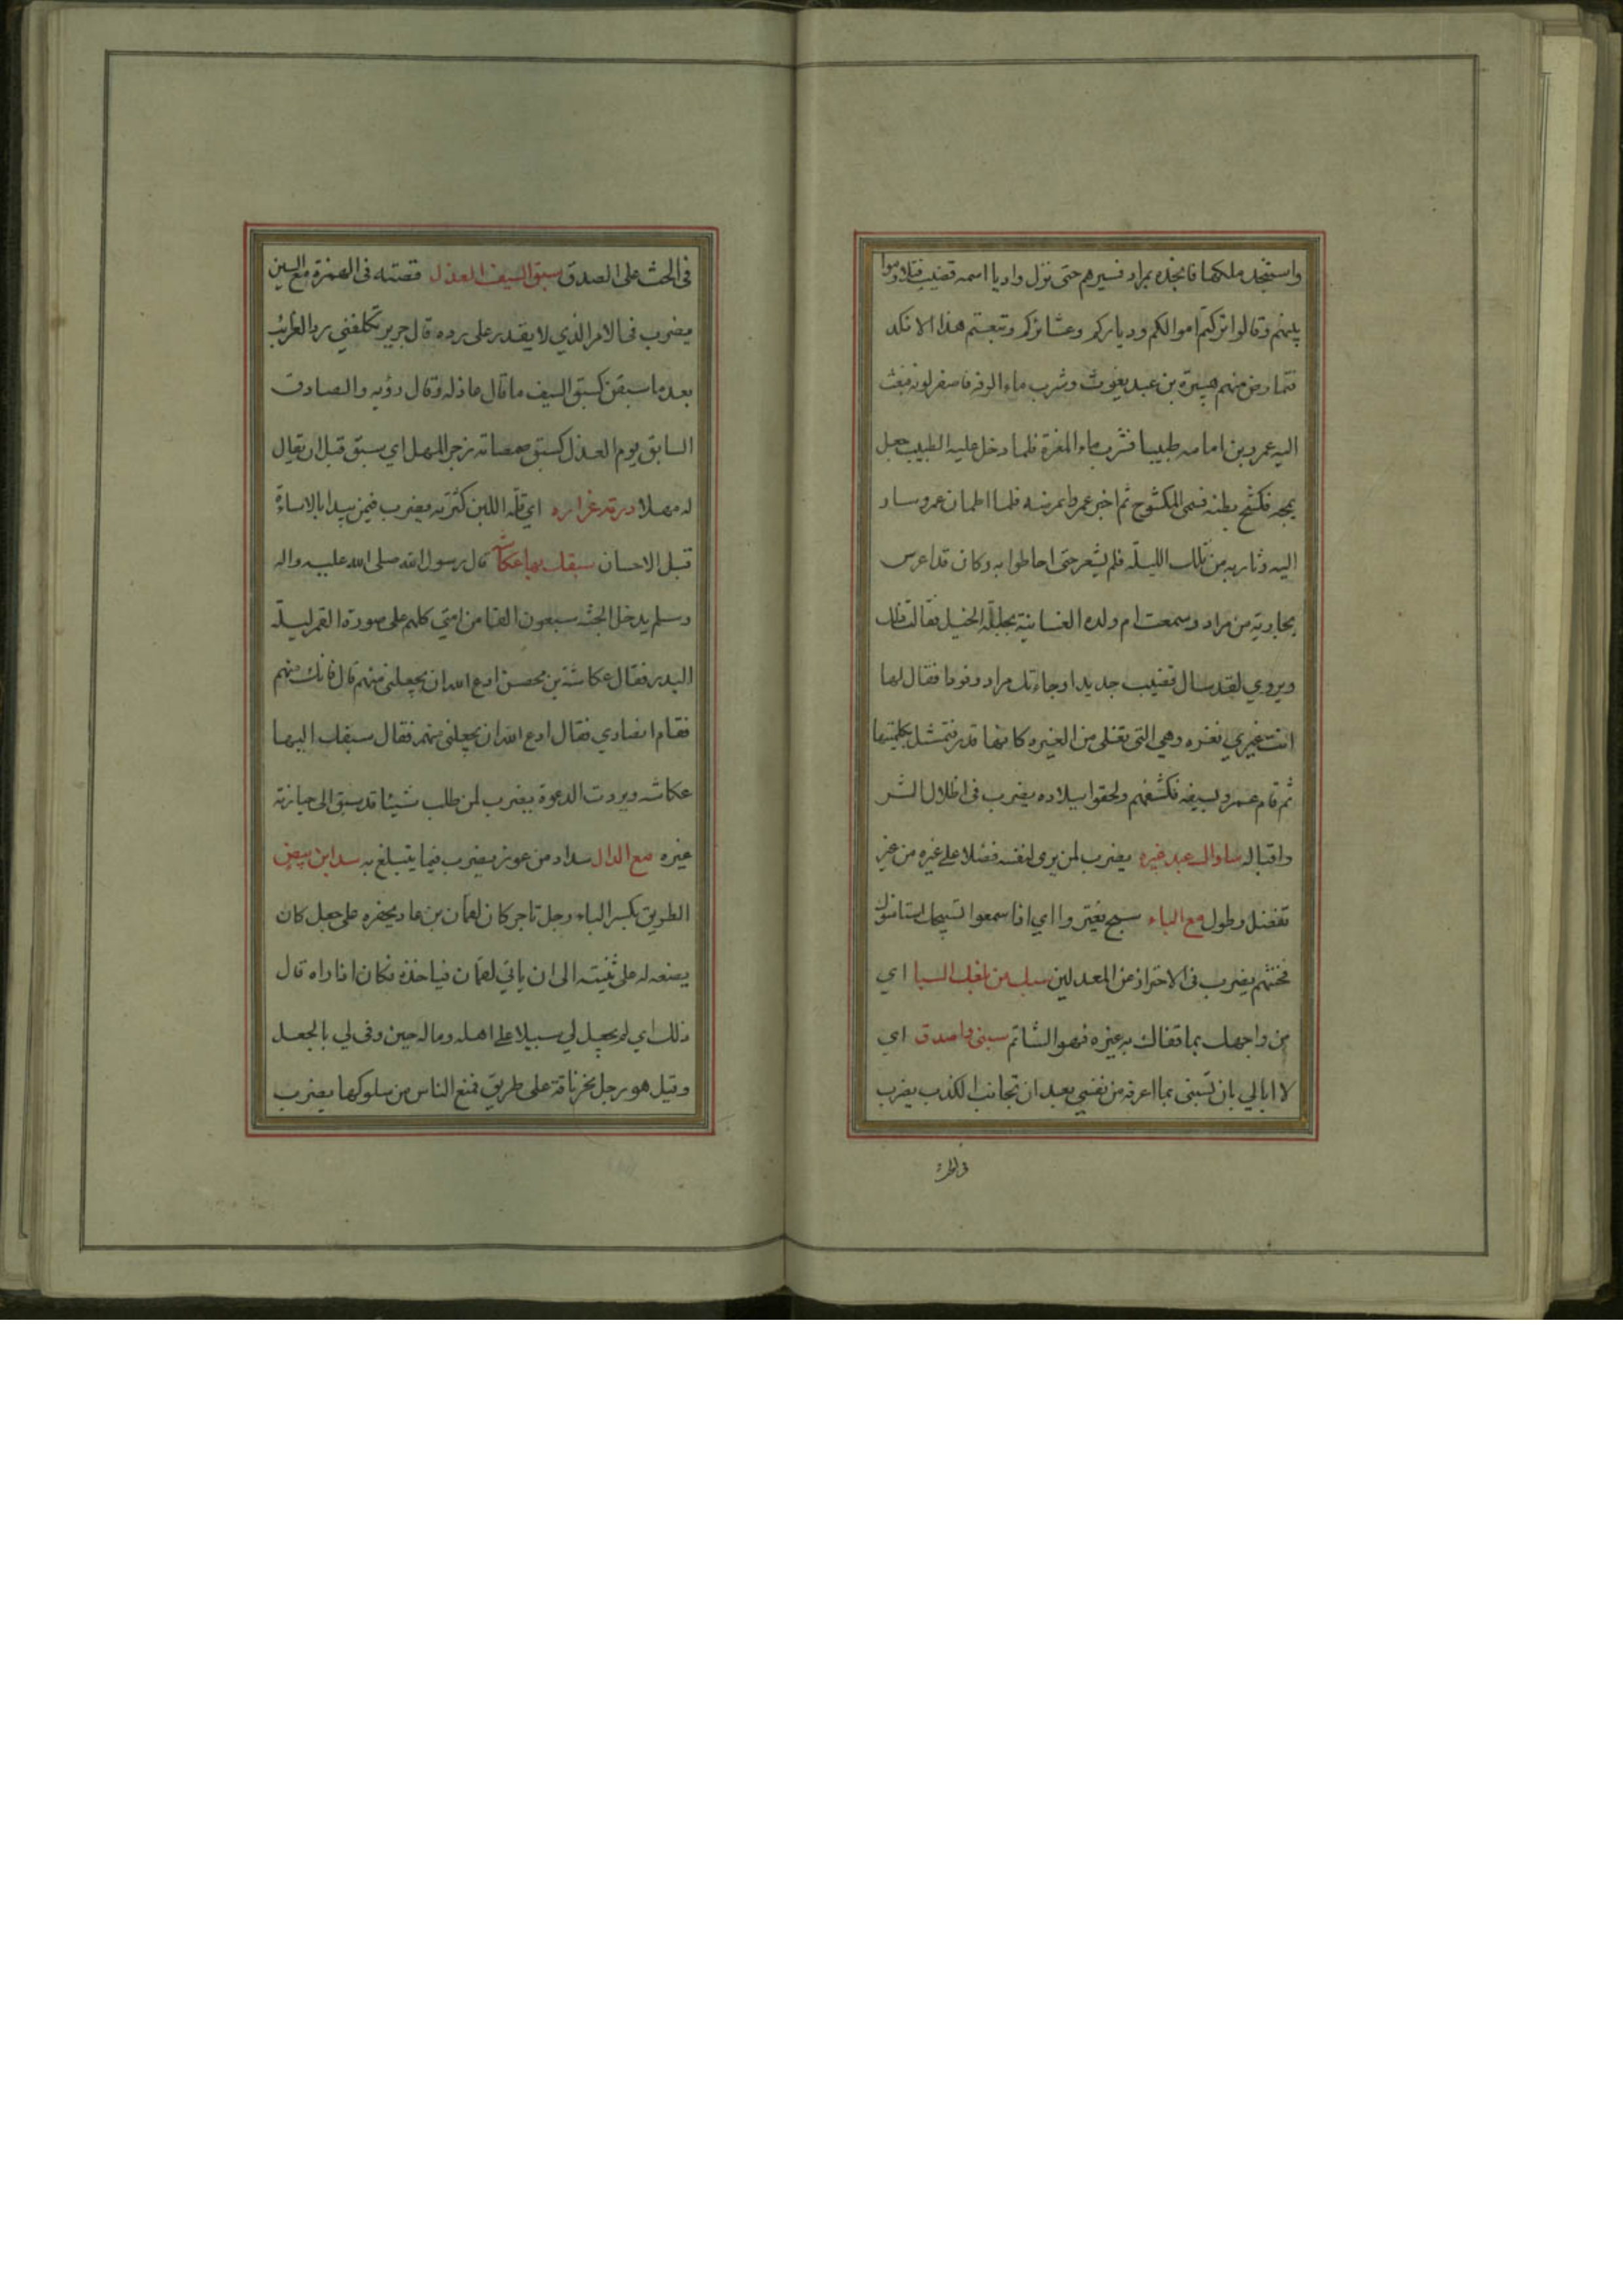 واستنجد ملكها فانجده بمراد فسيرهم حتى نزل واديا اسمه قضيب فتلاوموا
بينهم وقالوا تركتم اموالكم ودياركم وعشائركم وتبعتم هذا الانكد
فتمارض منهم هبيرة بن عبد يغوث وشرب ماء الرقة فاصفر لونه فبعث
اليه عمرو بن امامه طبيبا فشرب ماء المغرة فلما دخل عليه الطبيب جعل
يمجه فكشح بطنه فسمى المكشوح ثم اخبر عمرا بمرضه فلما اطمان عمرو سار
اليه وثار به من تلك الليلة فلم يشعر حتى احاطوا به وكان قد اعرس
بجارية من مراد وسمعت ام ولده الغسانية بجلبلة الخيل فقالت ذلك
ويروي لقد سال قضيب جديدا وجاءتك مراد وفودا فقال لها
انت غيري نغره وهي التي تغلى من الغيره كانها قدر فتمثل بكلمتيها
ثم قام عمرو بسيفه فكشفهم ولحقوا ببلاده يضرب فى اظلال الشر
واقباله ساواك عبد غيره يضرب لمن يرى لنفسه فضلا على غيره من غير
تفضل وطول مع الباء سبح يغتروا اي اذا سمعوا تسبيحك استانسوك
فختهم يضرب فى الاحتراز عن المعدلين سبك من بلغك السبا اي
من واجهك بما قفاك به غيره فهو الشاتم سبنى واصدق اي
لا ابالي بان تسبنى بما اعرفه من نفسي بعد ان تجانب الكذب يضرب
فى الحث
فى الحث على الصدق سبق السيف العذل قصته فى الهمزة مع السين
يضرب فى الامر الذي لا يقدر على رده قال جرير تكلفني رد الغرائب
بعد ما سبقن كسبق السيف ما قال عاذله وقال رؤبه والصادق
السابق يوم العذل كسبق صمصامه زجر المهل اي سبق قبل ان يقال
له مهلا درته غراره اي قلة اللبن كثرته يضرب فيمن يبدا بالاساءة
قبل الاحسان سبقك بها عكاشه قال رسول الله صلى الله عليه واله
وسلم يدخل الجنة سبعون الفا من امتي كلهم على صورة القمر ليلة
البدر فقال عكاشة بن محصن ادع الله ان يجعلنى منهم قال فانك منهم
فقام انصاري فقال ادع الله ان يجعلنى منهم فقال سبقك اليها
عكاشه وبردت الدعوة يضرب لمن طلب شيئا قد سبق الى حيازته
غيره مع الدال سداد من عوز يضرب فيما يتبلغ به سد ابن بيض
الطريق بكسر الباء رجل تاجر كان لقمان بن عاد يخفره على جعل كان
يضعه له على ثنيته الى ان ياتى لقمان فياخذه فكان اذا راه قال
ذلك اي لم يجعل لي سبيلا على اهله وماله حين وفى لي بالجعل
وقيل هو رجل نحر ناقة على طريق فمنع الناس من سلوكها يضرب